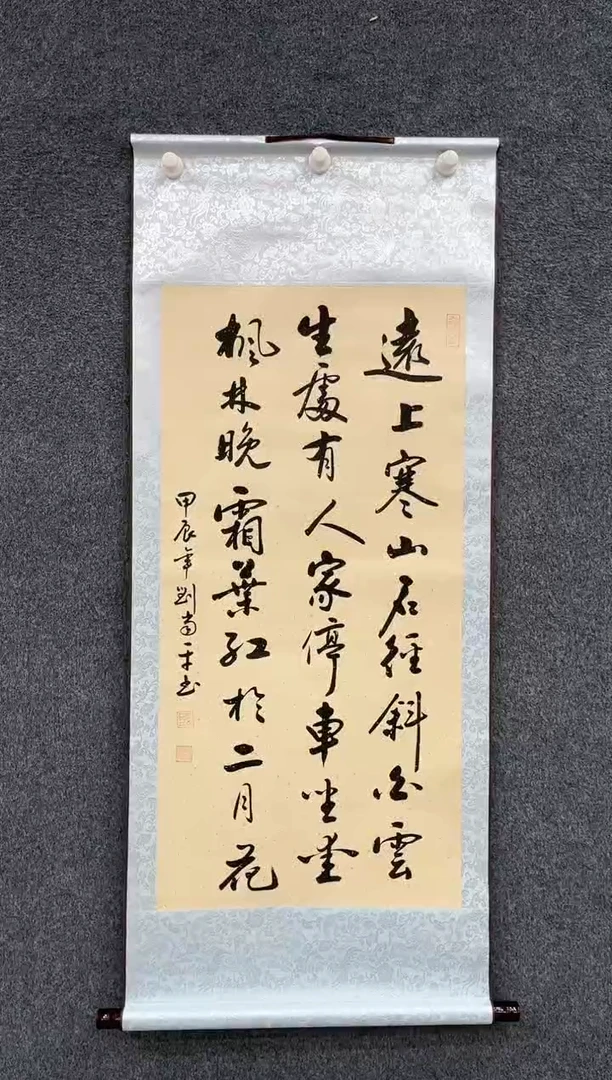 遠上寒山石徑斜白雲
生處有人家停車坐愛
楓林晚霜葉紅於二月花
甲辰年劉平书